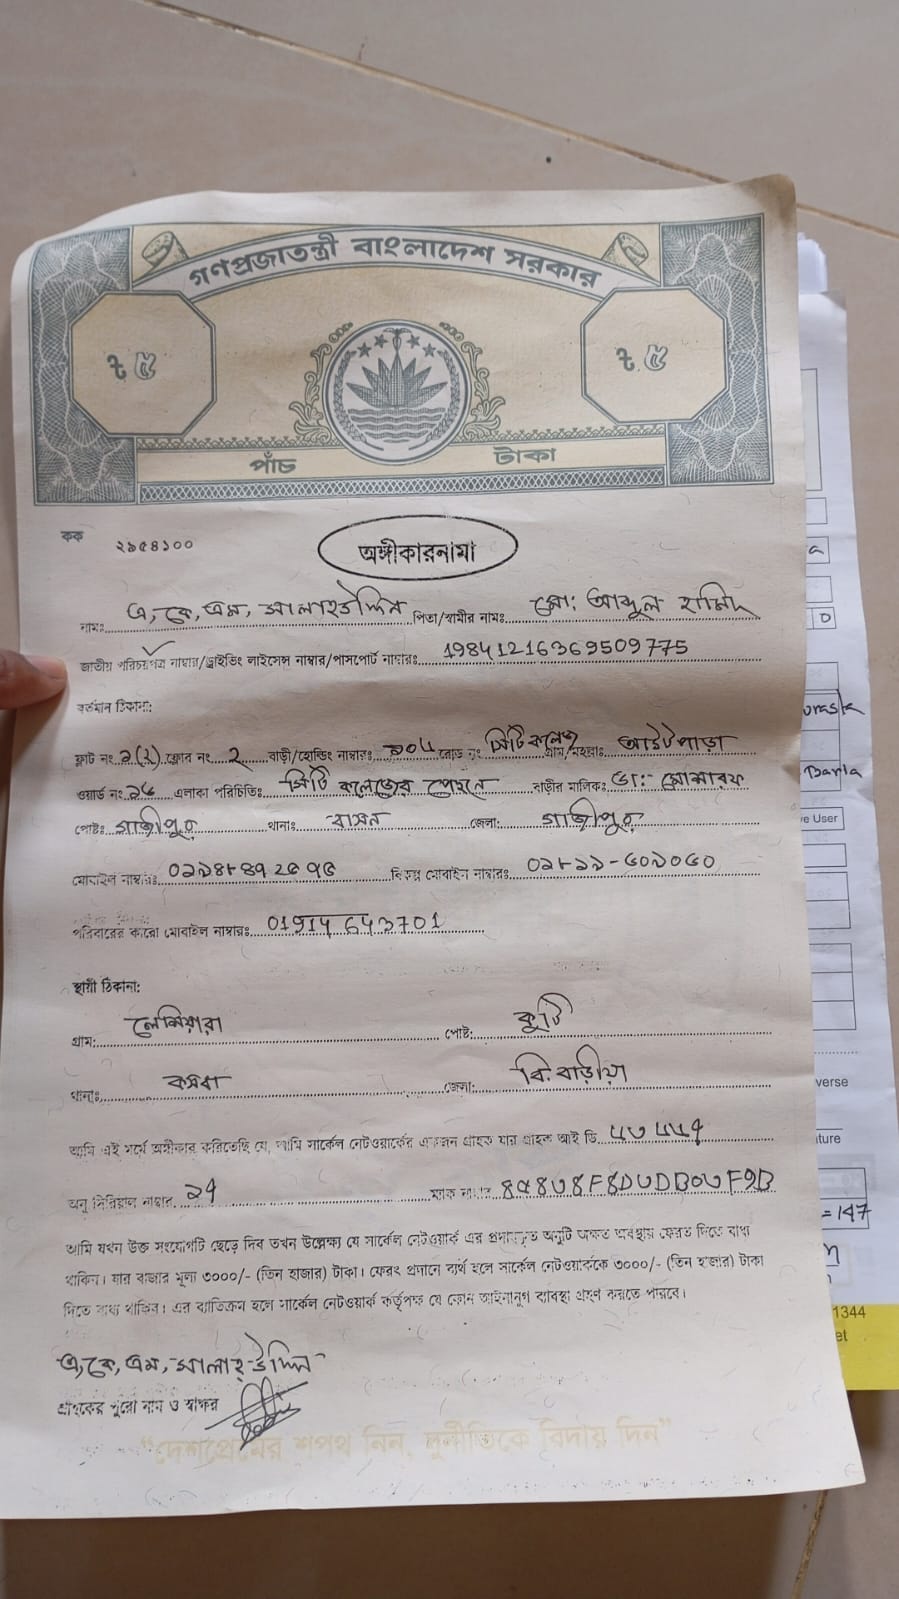 গণপ্রজাতন্ত্রী বাংলাদেশ সরকার
৳ ৫ ৳ ৫
পাঁচ টাকা
কক ২৯৫৪১০০
অঙ্গীকারনামা
নামঃ এ,কে,এম, সালাহউদ্দিন পিতা/স্বামীর নামঃ মো: আব্দুল হামিদ
জাতীয় পরিচয়পত্র নাম্বার/ড্রাইভিং লাইসেন্স নাম্বার/পাসপোর্ট নাম্বারঃ 19841216369509775
বর্তমান ঠিকানা:
ফ্লাট নং ফ্লোর নং ২ বাড়ী/হোল্ডিং নাম্বারঃ রোড নং সিটি কলেজ গ্রাম/মহল্লাঃ আউটপাড়া
ওয়ার্ড নং ১৬ এলাকা পরিচিতিঃ সিটি কলেজের পেছনে বাড়ীর মালিকঃ ডা: মোশারফ
পোষ্টঃ গাজীপুর থানাঃ বাসন জেলা: গাজীপুর
মোবাইল নাম্বারঃ বিকল্প মোবাইল নাম্বারঃ
পরিবারের কারো মোবাইল নাম্বারঃ 01914643701
স্থায়ী ঠিকানা:
গ্রাম: লেশিয়ারা পোষ্ট: কুটি
থানাঃ কসবা জেলা: বি.বাড়ীয়া
আমি এই মর্মে অঙ্গীকার করিতেছি যে, আমি সার্কেল নেটওয়ার্কের একজন গ্রাহক যার গ্রাহক আই ডি
অনু সিরিয়াল নাম্বার ২৭ ম্যাক
আমি যখন উক্ত সংযোগটি ছেড়ে দিব তখন উল্লেখ্য যে সার্কেল নেটওয়ার্ক এর প্রদানকৃত অনুটি অক্ষত অবস্থায় ফেরত দিতে বাধ্য
থাকিব। যার বাজার মূল্য ৩০০০/- (তিন হাজার) টাকা। ফেরৎ প্রদানে ব্যর্থ হলে সার্কেল নেটওয়ার্ককে ৩০০০/- (তিন হাজার) টাকা
দিতে বাধ্য থাকিব। এর ব্যতিক্রম হলে সার্কেল নেটওয়ার্ক কর্তৃপক্ষ যে কোন আইনানুগ ব্যবস্থা গ্রহণ করতে পারবে।
এ,কে,এম, সালাহউদ্দিন
গ্রাহকের পুরো নাম ও স্বাক্ষর
“দেশপ্রেমের শপথ নিন, দুর্নীতিকে বিদায় দিন”
D
User
verse
=147
1344
et